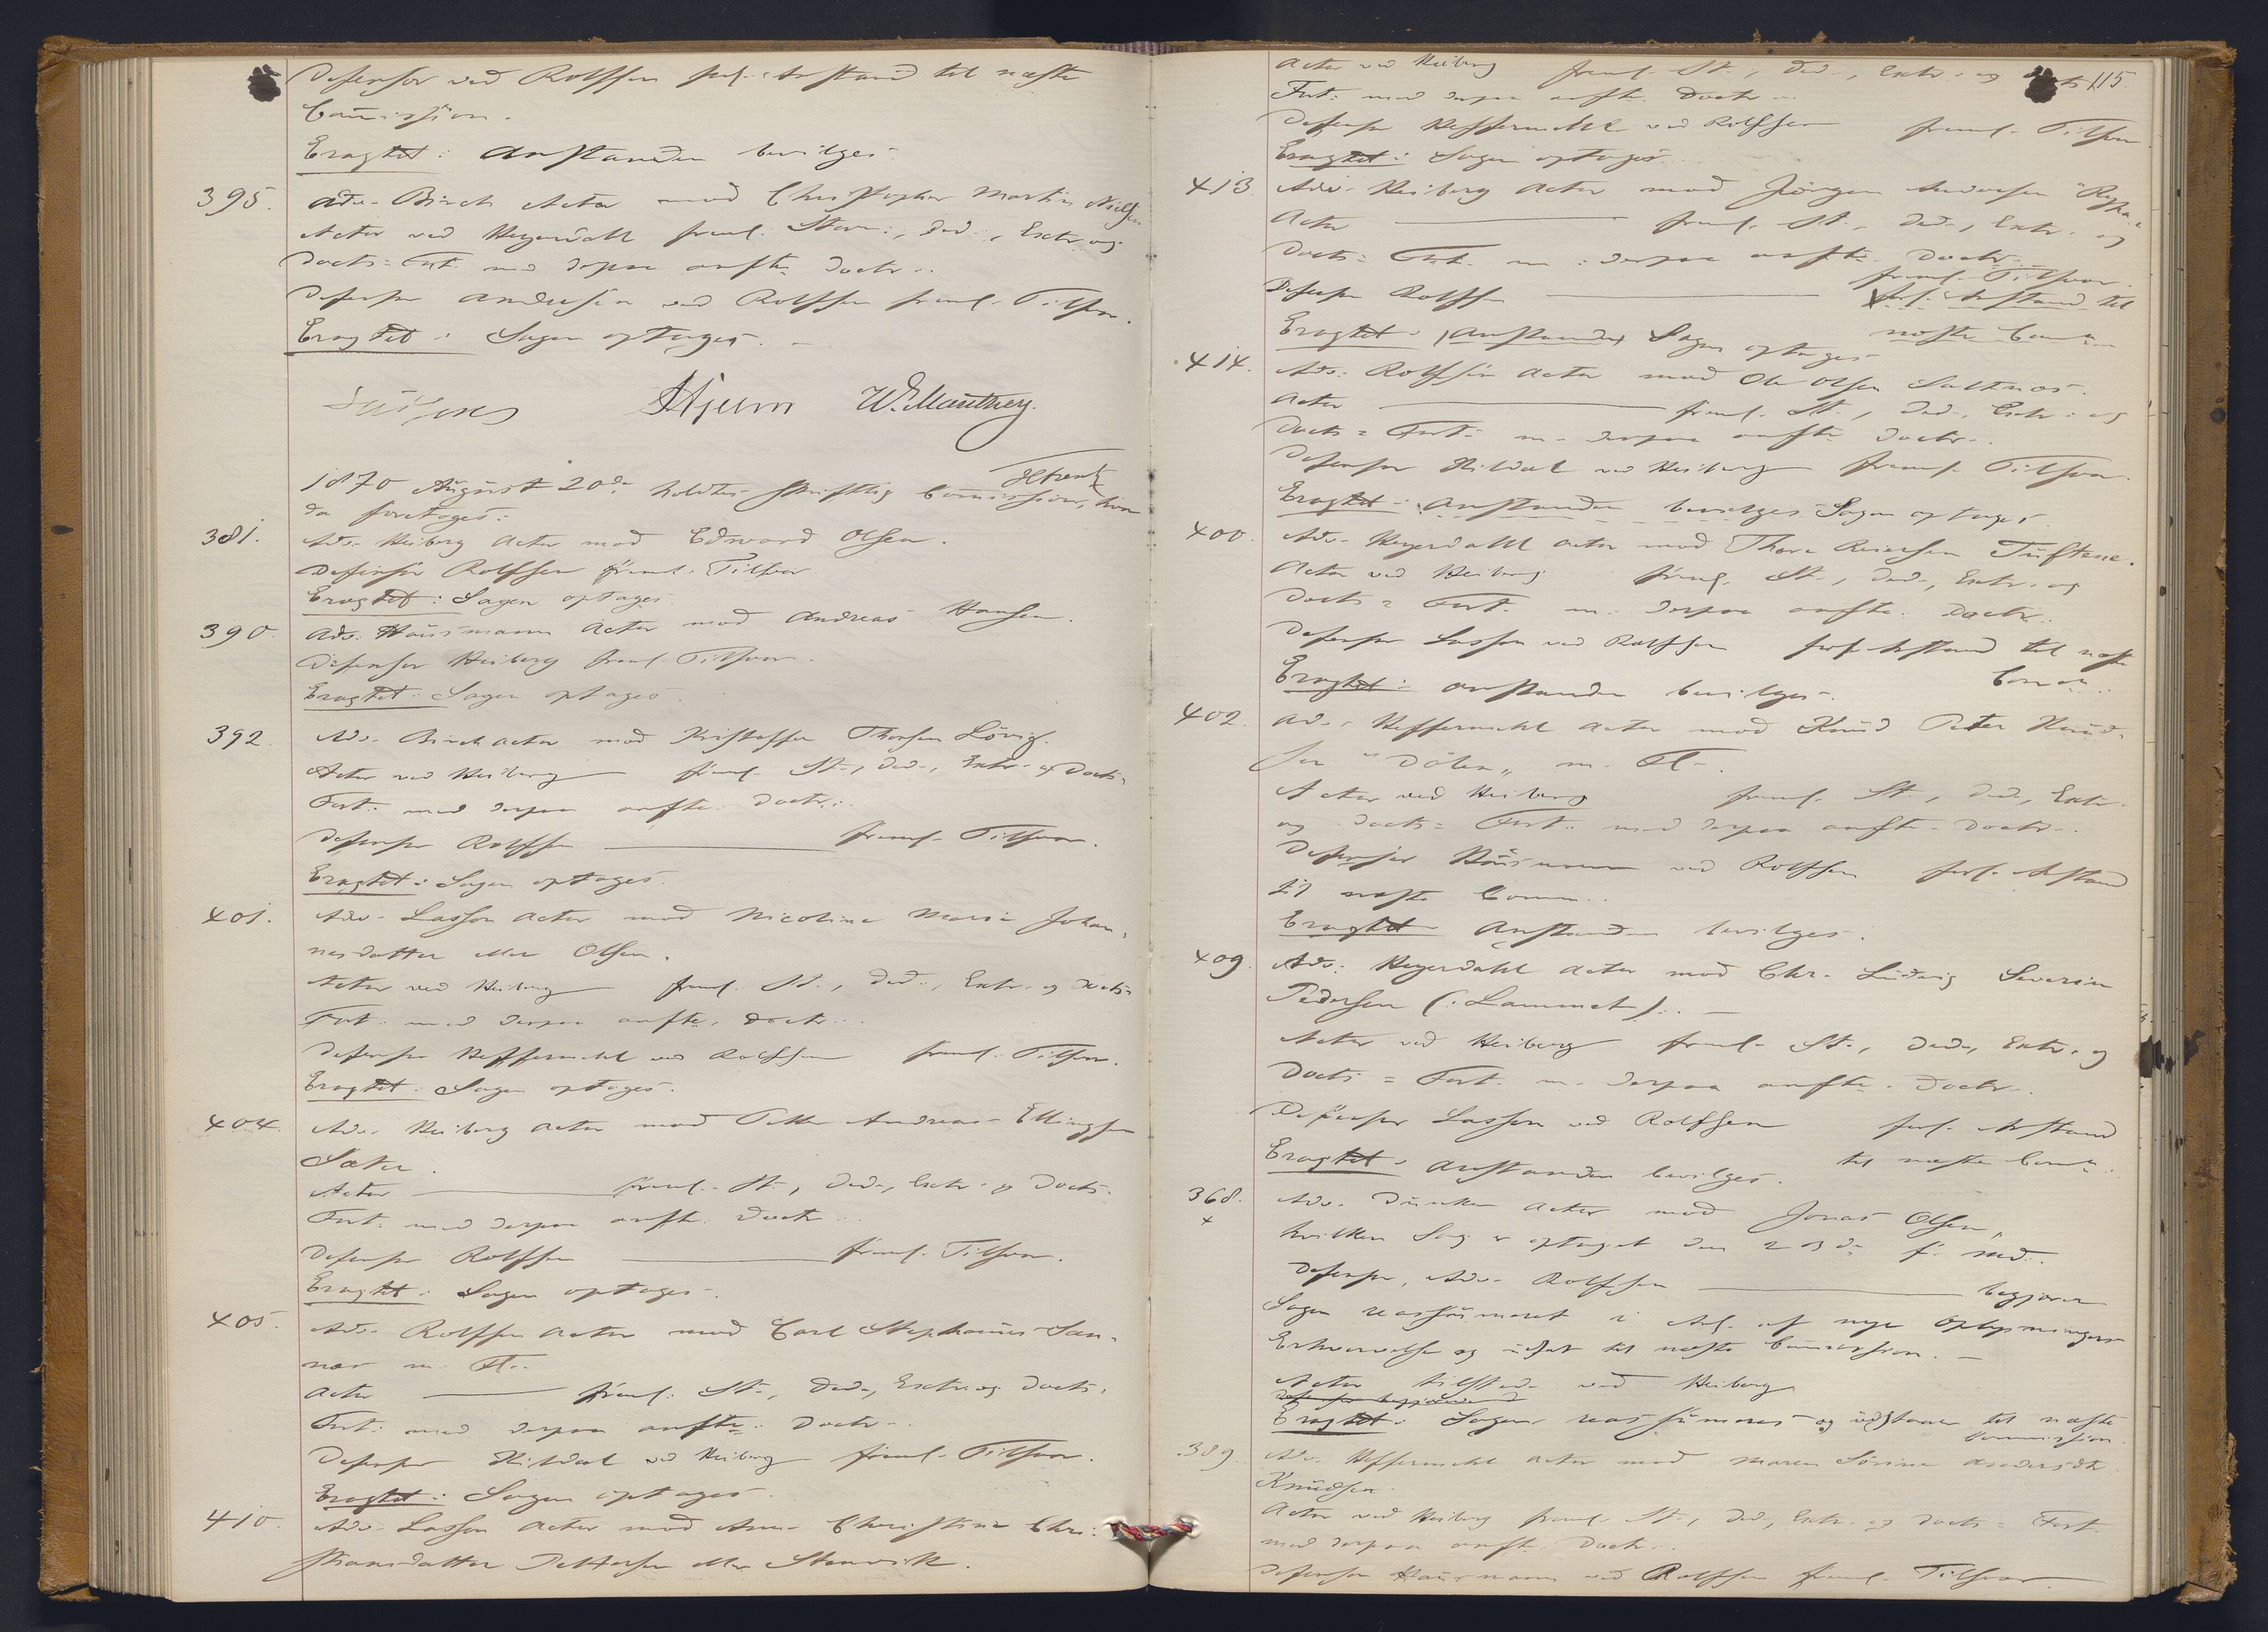 Defensor ved Rolfsen forl. Anstand til næste
Commission.
Eragtet: Anstanden bevilges
395. Adv. Birch Actor mod Christopher Martin Nielsen
Actor ved Heyerdahl freml. Stevn., Ded., Extr. og
Docts: Fort. med derpaa anfte Doctr.
Defensor Andresen ved Rolfsen freml. Tilsvar.
Eragtet: Sagen optages.
Hjelm W. E. Manthey.
1870 August 20de holdtes skriftlig Commission, hvor
da foretoges:
381. Adv. Heiberg Actor mod Edward Olsen.
Defensor Rolfsen freml. Tilsvar
Eragtet: Sagen optages
390. Adv. Hausmann Actor mod Andreas Hansen.
Defensor Heiberg freml. Tilsvar.
Eragtet: Sagen optages.
392. Adv. Birch Actor mod Kristoffer Thorsen
Actor ved Heiberg freml. St., Ded., Extr. og Docts:
Fort. med derpaa anfte. Doctr.
Defensor Rolfsen freml. Tilsvar.
Eragtet: Sagen optages.
401. Adv. Lasson Actor mod Nicoline Marie Johan-
nesdatter eller Olsen.
Actor ved Heiberg freml. St., Ded., Extr. og Docts:
Fort. med derpaa anfte. Doctr.
Defensor Heffermehl ved Rolfsen freml. Tilsvar.
Eragtet: Sagen optages.
404. Adv. Heiberg Actor mod Petter Andreas Ellingsen
Sæter.
Actor freml. St., Ded., Extr. og Docts:
Fort. med derpaa anfte. Doctr.
Defensor Rolfsen freml. Tilsvar.
Eragtet: Sagen optages.
405. Adv. Rolfsen Actor mod Carl Stephanus San-
nær m. Fl.
Actor freml. St., Ded., Extr. og Docts:
Fort. med derpaa anfte. Doctr.
Defensor Hildal ved Heiberg freml. Tilsvar.
Eragtet: Sagen optages.
410. Adv. Lasson Actor mod Anne Christine Chri-
stiansdatter Pettersen eller Stenvik.
115.
Actor ved Heiberg freml. St., Ded., Extr. og
Fort. med derpaa anfte. Doctr.
Defensor Heffermehl ved Rolfsen freml. Tilsvar
Eragtet: Sagen optages.
413. Adv. Heiberg Actor mod Jörgen Andersen
Actor freml. St., Ded., Extr. og
Docts: Fort. m. derpaa anfte. Doctr.
freml. Tilsvar.
Defensor Rolfsen forl. Anstand til
næste Comm.
Eragtet: Anstanden Sagen optages
414. Adv. Rolfsen Actor mod Ole Olsen Saltnæs.
Actor freml. St., Ded., Extr. og
Docts: Fort. m. derpaa anfte. Doctr.
Defensor Hildal ved Heiberg freml. Tilsvar.
Eragtet: Anstanden bevilges Sagen optages
400. Adv. Heyerdahl Actor mod Thore Reiersen Tuftene.
Actor ved Heiberg freml. St., Ded., Extr. og
Docts: Fort. m. derpaa anfte. Doctr.
Defensor Lasson ved Rolfsen forl. Anstand til næste
Comm.
Eragtet: Anstanden bevilges.
402. Adv. Heffermehl Actor mod Knud Peter Knud-
sen "Dölen" m. Fl.
Actor ved Heiberg freml. St., Ded., Extr.
og Docts: Fort. med derpaa anfte. Doctr.
Defensor Hausmann ved Rolfsen forl. Anstand
til næste Comm.
Eragtet Anstanden bevilges.
409. Adv. Heyerdahl Actor mod Chr. Ludvig Severin
Pedersen (: Lammet).
Actor ved Heiberg freml. St., Ded., Extr. og
Docts: Fort. m. derpaa anfte. Doctr.
Defensor Lasson ved Rolfsen forl. Anstand
til næste Comm.
Eragtet: Anstanden bevilges.
368. Adv. Dunker Actor mod Jonas Olsen,
x hvilken Sag er optaget den 23de f. Md.
Defensor, Adv. Rolfsen begjærer
Sagen reassumeret i Anl. af nye Oplysningers
Erhvervelse og udsat til næste Commission.
Actor tilstede ved Heiberg
Eragtet: Sagen reassumeres og udstaaer til næste
Commission.
389. Adv. Heffermehl Actor mod Maren Sörine Andersdtr.
Knudsen.
Actor ved Heiberg freml. St., Ded., Extr. og Docts: Fort.
med derpaa anfte. Doctr.
Defensor Hausmann ved Rolfsen freml. Tilsvar.